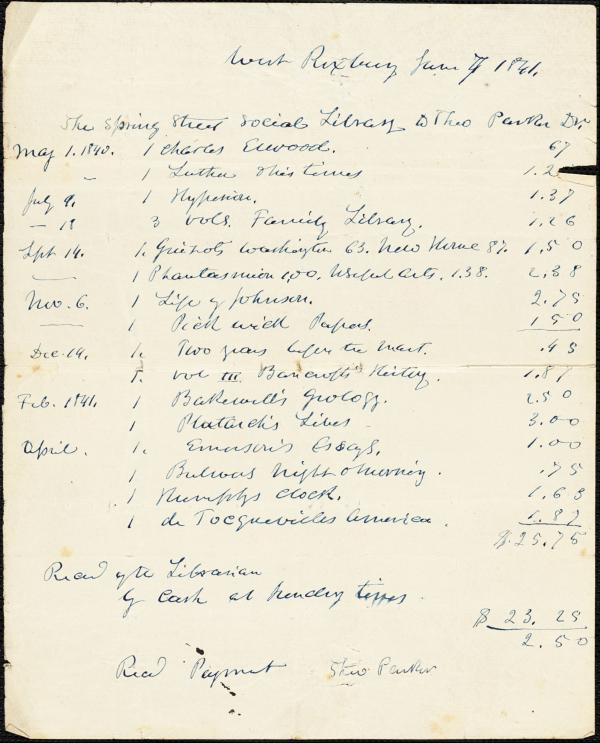 West Roxbury June 7 1841.
The Spring Street Social Library to Theo Parker Dr.
May 1. 1840. 1 Charles Elwood. 67
" 1 Luther & his times 1.2
July 9. 1 Hyperion. 1.37
— 18 3 vols. Family Library. 1.26
Sept 14. 1. Guizots Washington 63. New Home 87. 1.50
— 1 Phantasmion 1,00. Useful Arts. 1.38. 2.38
Nov. 6. 1 Life of Johnson. 2.75
— 1 Pickwick Papers. 1 50
Dec. 14. 1. Two years before the mast. .45
1. vol III. Bancrofts History. 1.87
Feb. 1841. 1 Bakewell's Geology. 2.50
1 Plutarch's Lives 3.00
April. 1. Emerson's Essays. 1.00
1 Bulwers Night & Morning. .75
1 Humphys Clock. 1.63
1 de Tocquevilles America. 1.87
$.25.75
Recd of the Librarian
by Cash at sundry times.
$ 23.25
2.50
Recd Payment Theo Parker